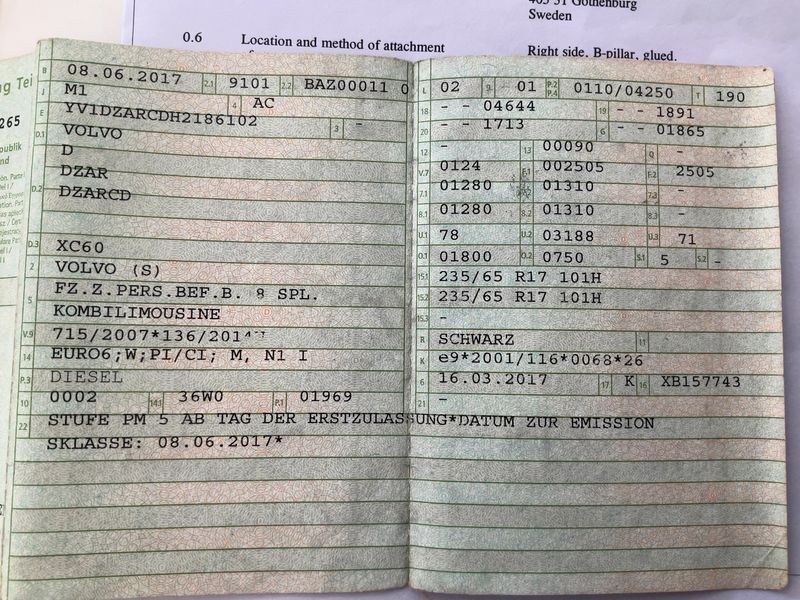 405 31 Gothenburg
Sweden
0.6 Location and method of attachment Right side, B-pillar, glued.
g Tei
265
B 08.06.2017 2.1 9101 2.2 BAZ00011 0
J M1 4 AC
E YV1DZARCDH2186102 3 -
D.1 VOLVO
D
D.2 DZAR
DZARCD
D.3 XC60
2 VOLVO (S)
5 FZ.Z.PERS.BEF.B. 8 SPL.
KOMBILIMOUSINE
V.9 715/2007*136/201
14 EURO6;W;PI/CI; M, N1 I
P.3 DIESEL
10 0002 14.1 36W0 P.1 01969
22 STUFE PM 5 AB TAG DER ERSTZULASSUNG*DATUM ZUR EMISSION
SKLASSE: 08.06.2017*
L 02 9 01 P.2 P.4 0110/04250 T 190
18 - - 04644 19 - - 1891
20 - - 1713 G - - 01865
12 - 13 00090 Q -
V.7 0124 F.1 002505 F.2 2505
7.1 01280 7.2 01310 7.3 -
8.1 01280 8.2 01310 8.3 -
U.1 78 U.2 03188 U.3 71
O.1 01800 O.2 0750 S.1 5 S.2 -
15.1 235/65 R17 101H
15.2 235/65 R17 101H
15.3 -
R SCHWARZ 11
K e9*2001/116*0068*26
6 16.03.2017 17 K 16 XB157743
21 -